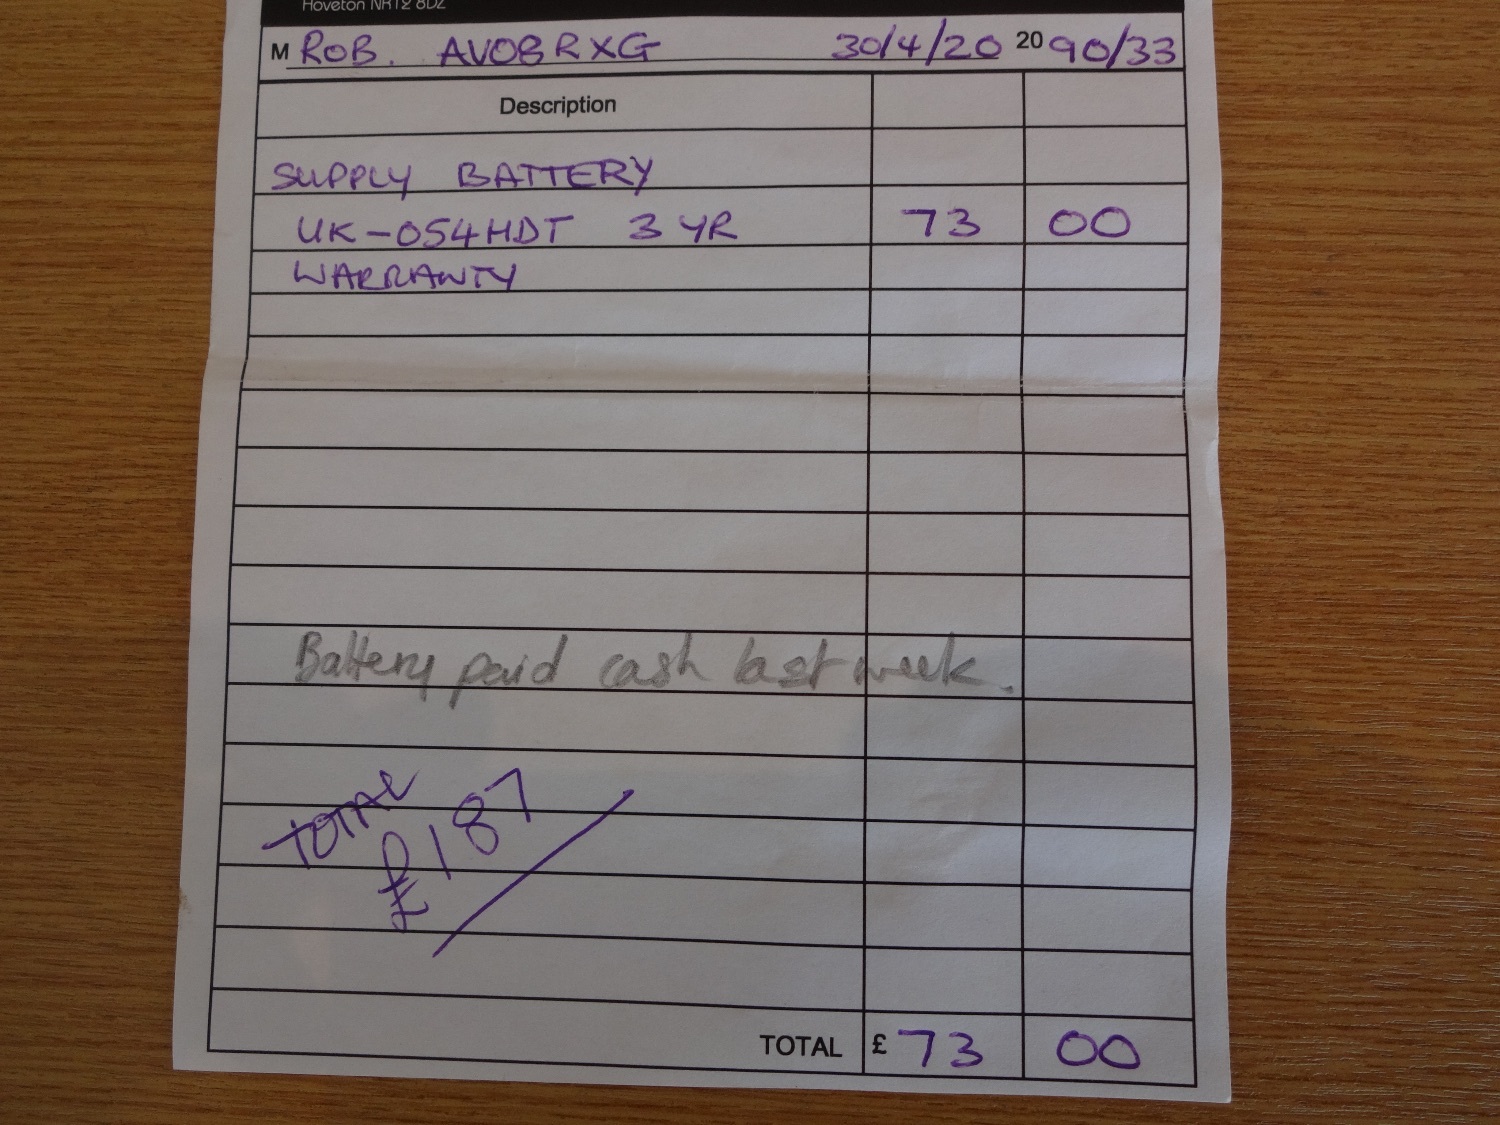 Hoveton NR12 8DZ
M ROB. AV08RXG 30/4/20 20 90/33
Description
SUPPLY BATTERY
UK-054HDT 3 YR 73 00
WARRANTY
Battery paid cash last week.
TOTAL
£187
TOTAL £ 73 00